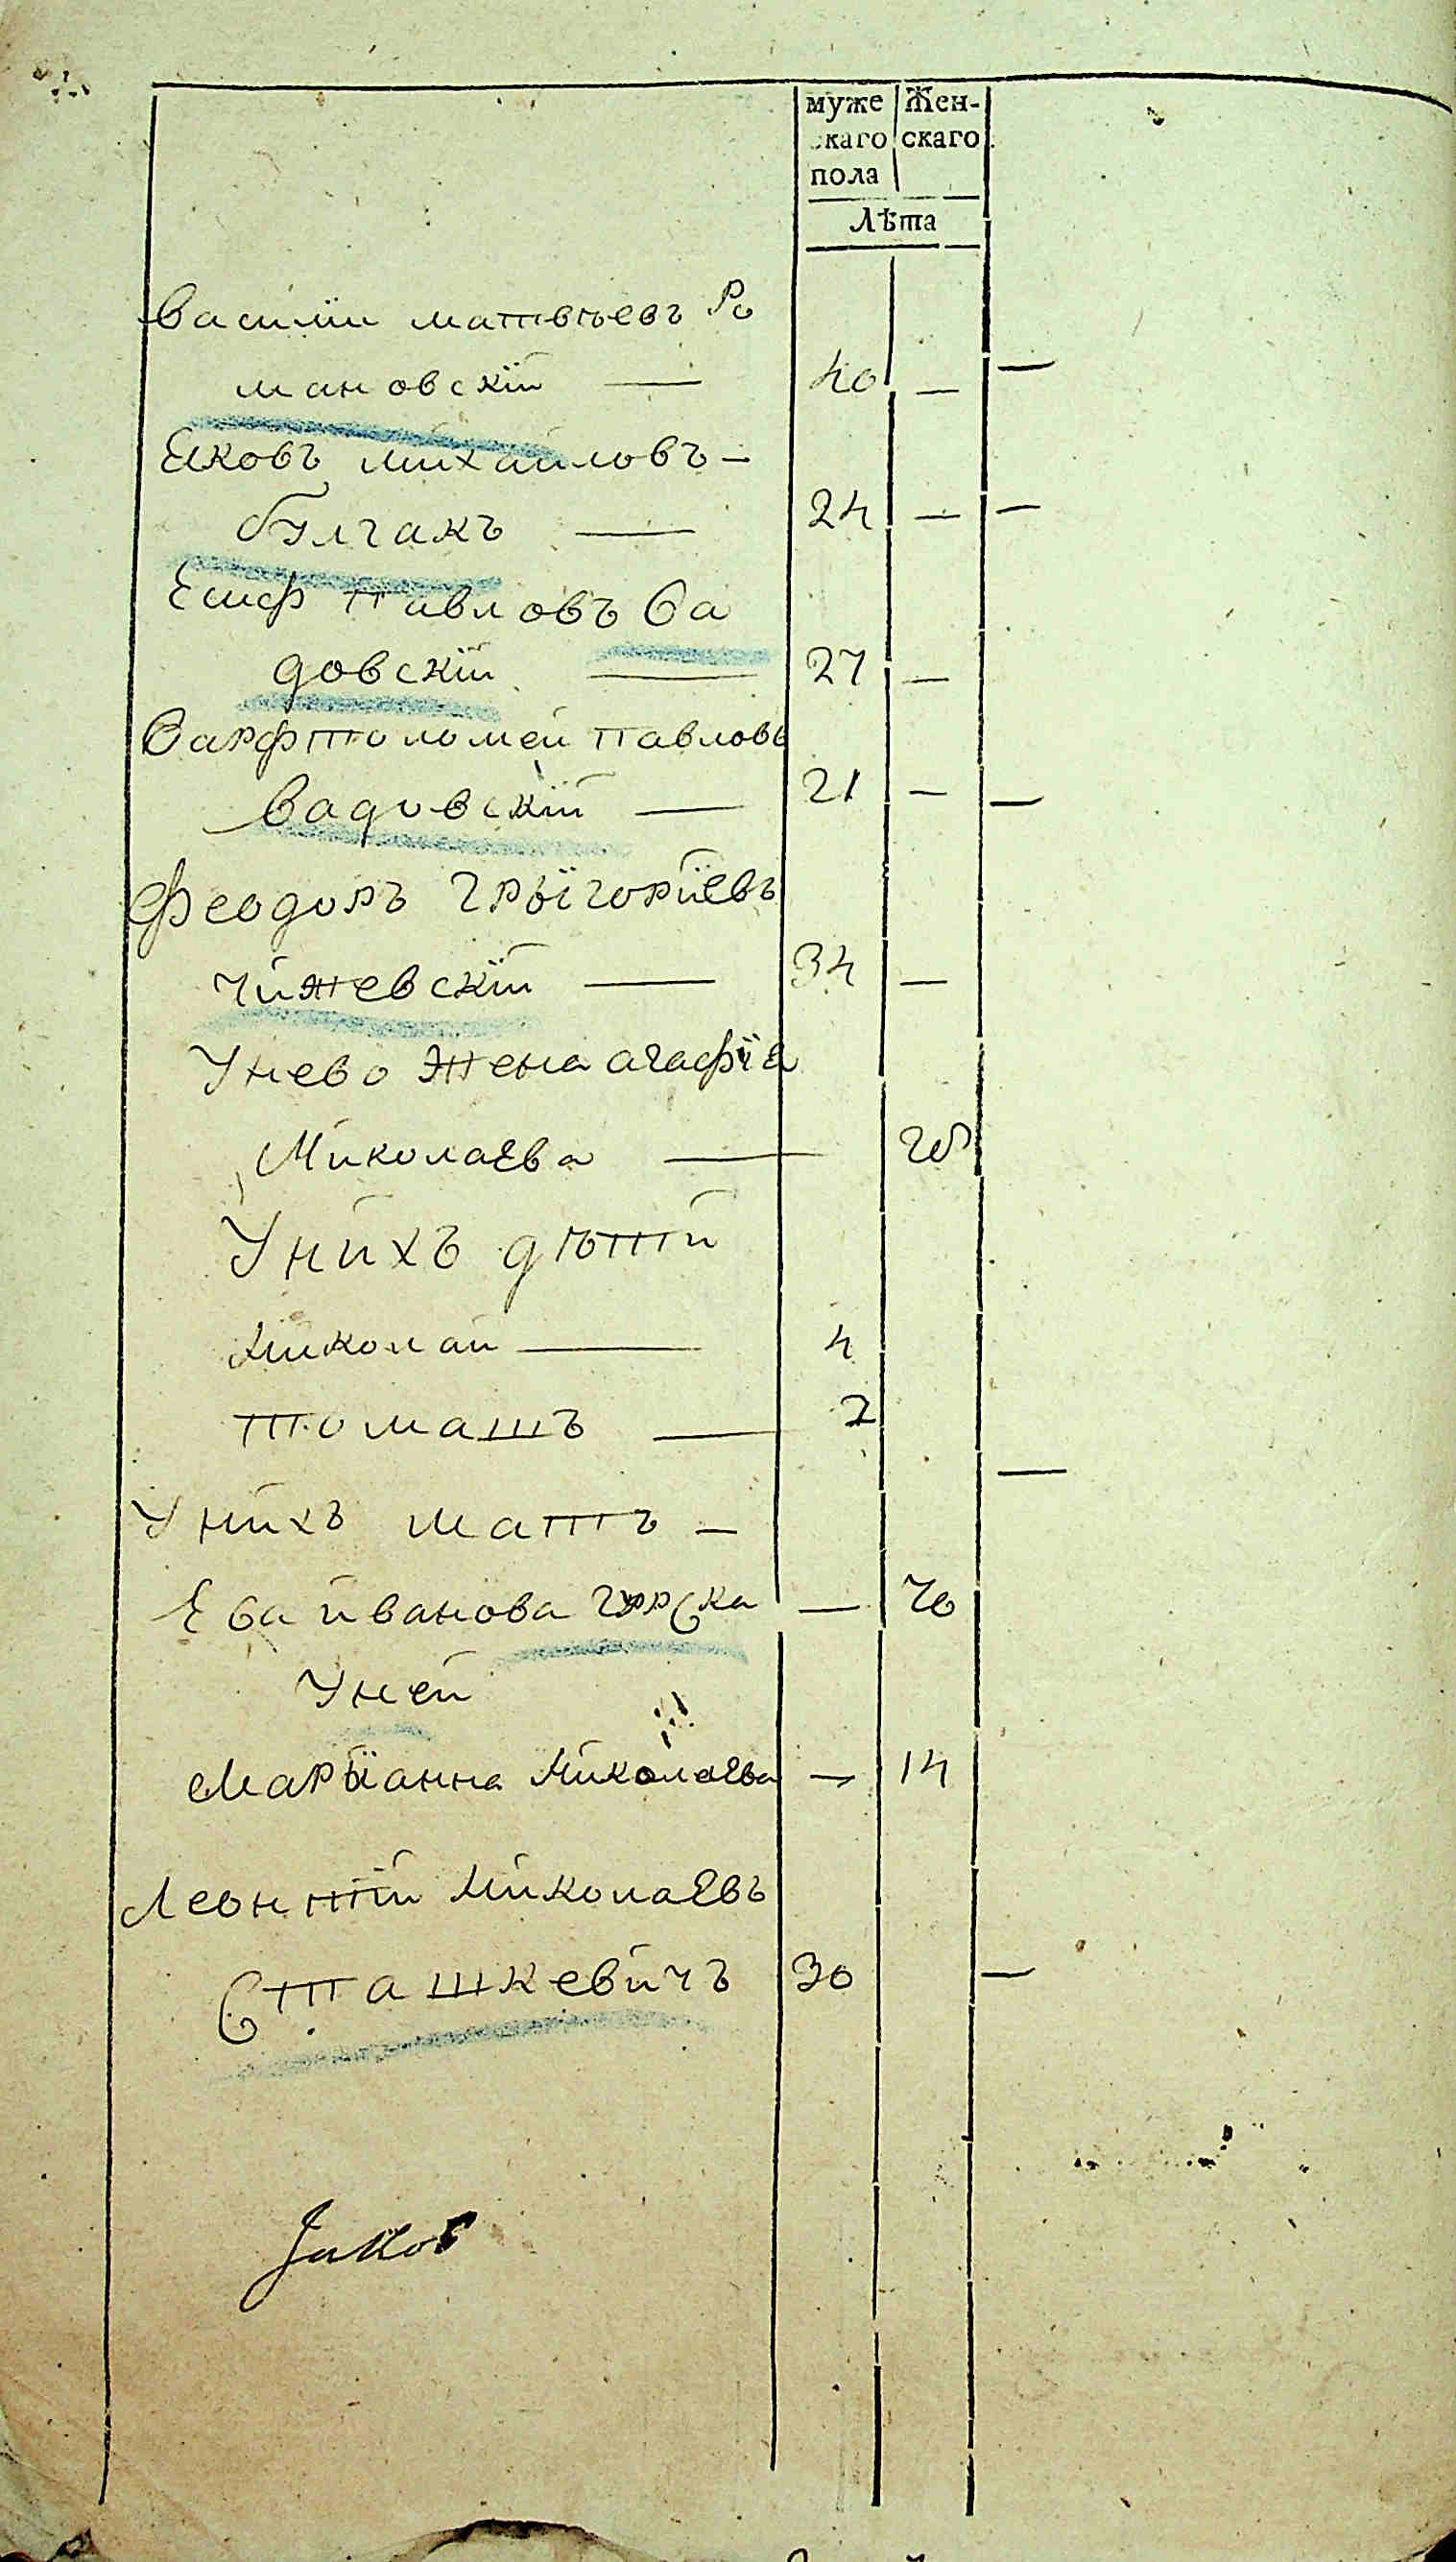 муже Жен-
скаго скаго
пола
Лѣта
Василии матвѣевъ Ро
мановскїй — 40 — —
Ековъ михаиловъ —
булгакъ — 24 — —
Есиф Павловъ Ва
довскїй — 27 —
Варфтоломей павловъ
Вадовскїй — 21 — —
Феодоръ грыгорїевъ
Чижевскїй — 34 —
Унево Жена агафїя
Миколаева —
Унихъ дѣтїй
Миколай — 4
томашъ — 2
—
Унихъ матъ —
Ева иванова гурска — 70
Уней
Марыанна Миколаева — 14
Леонтїй Миколаевъ
Сташкевичъ 30 —